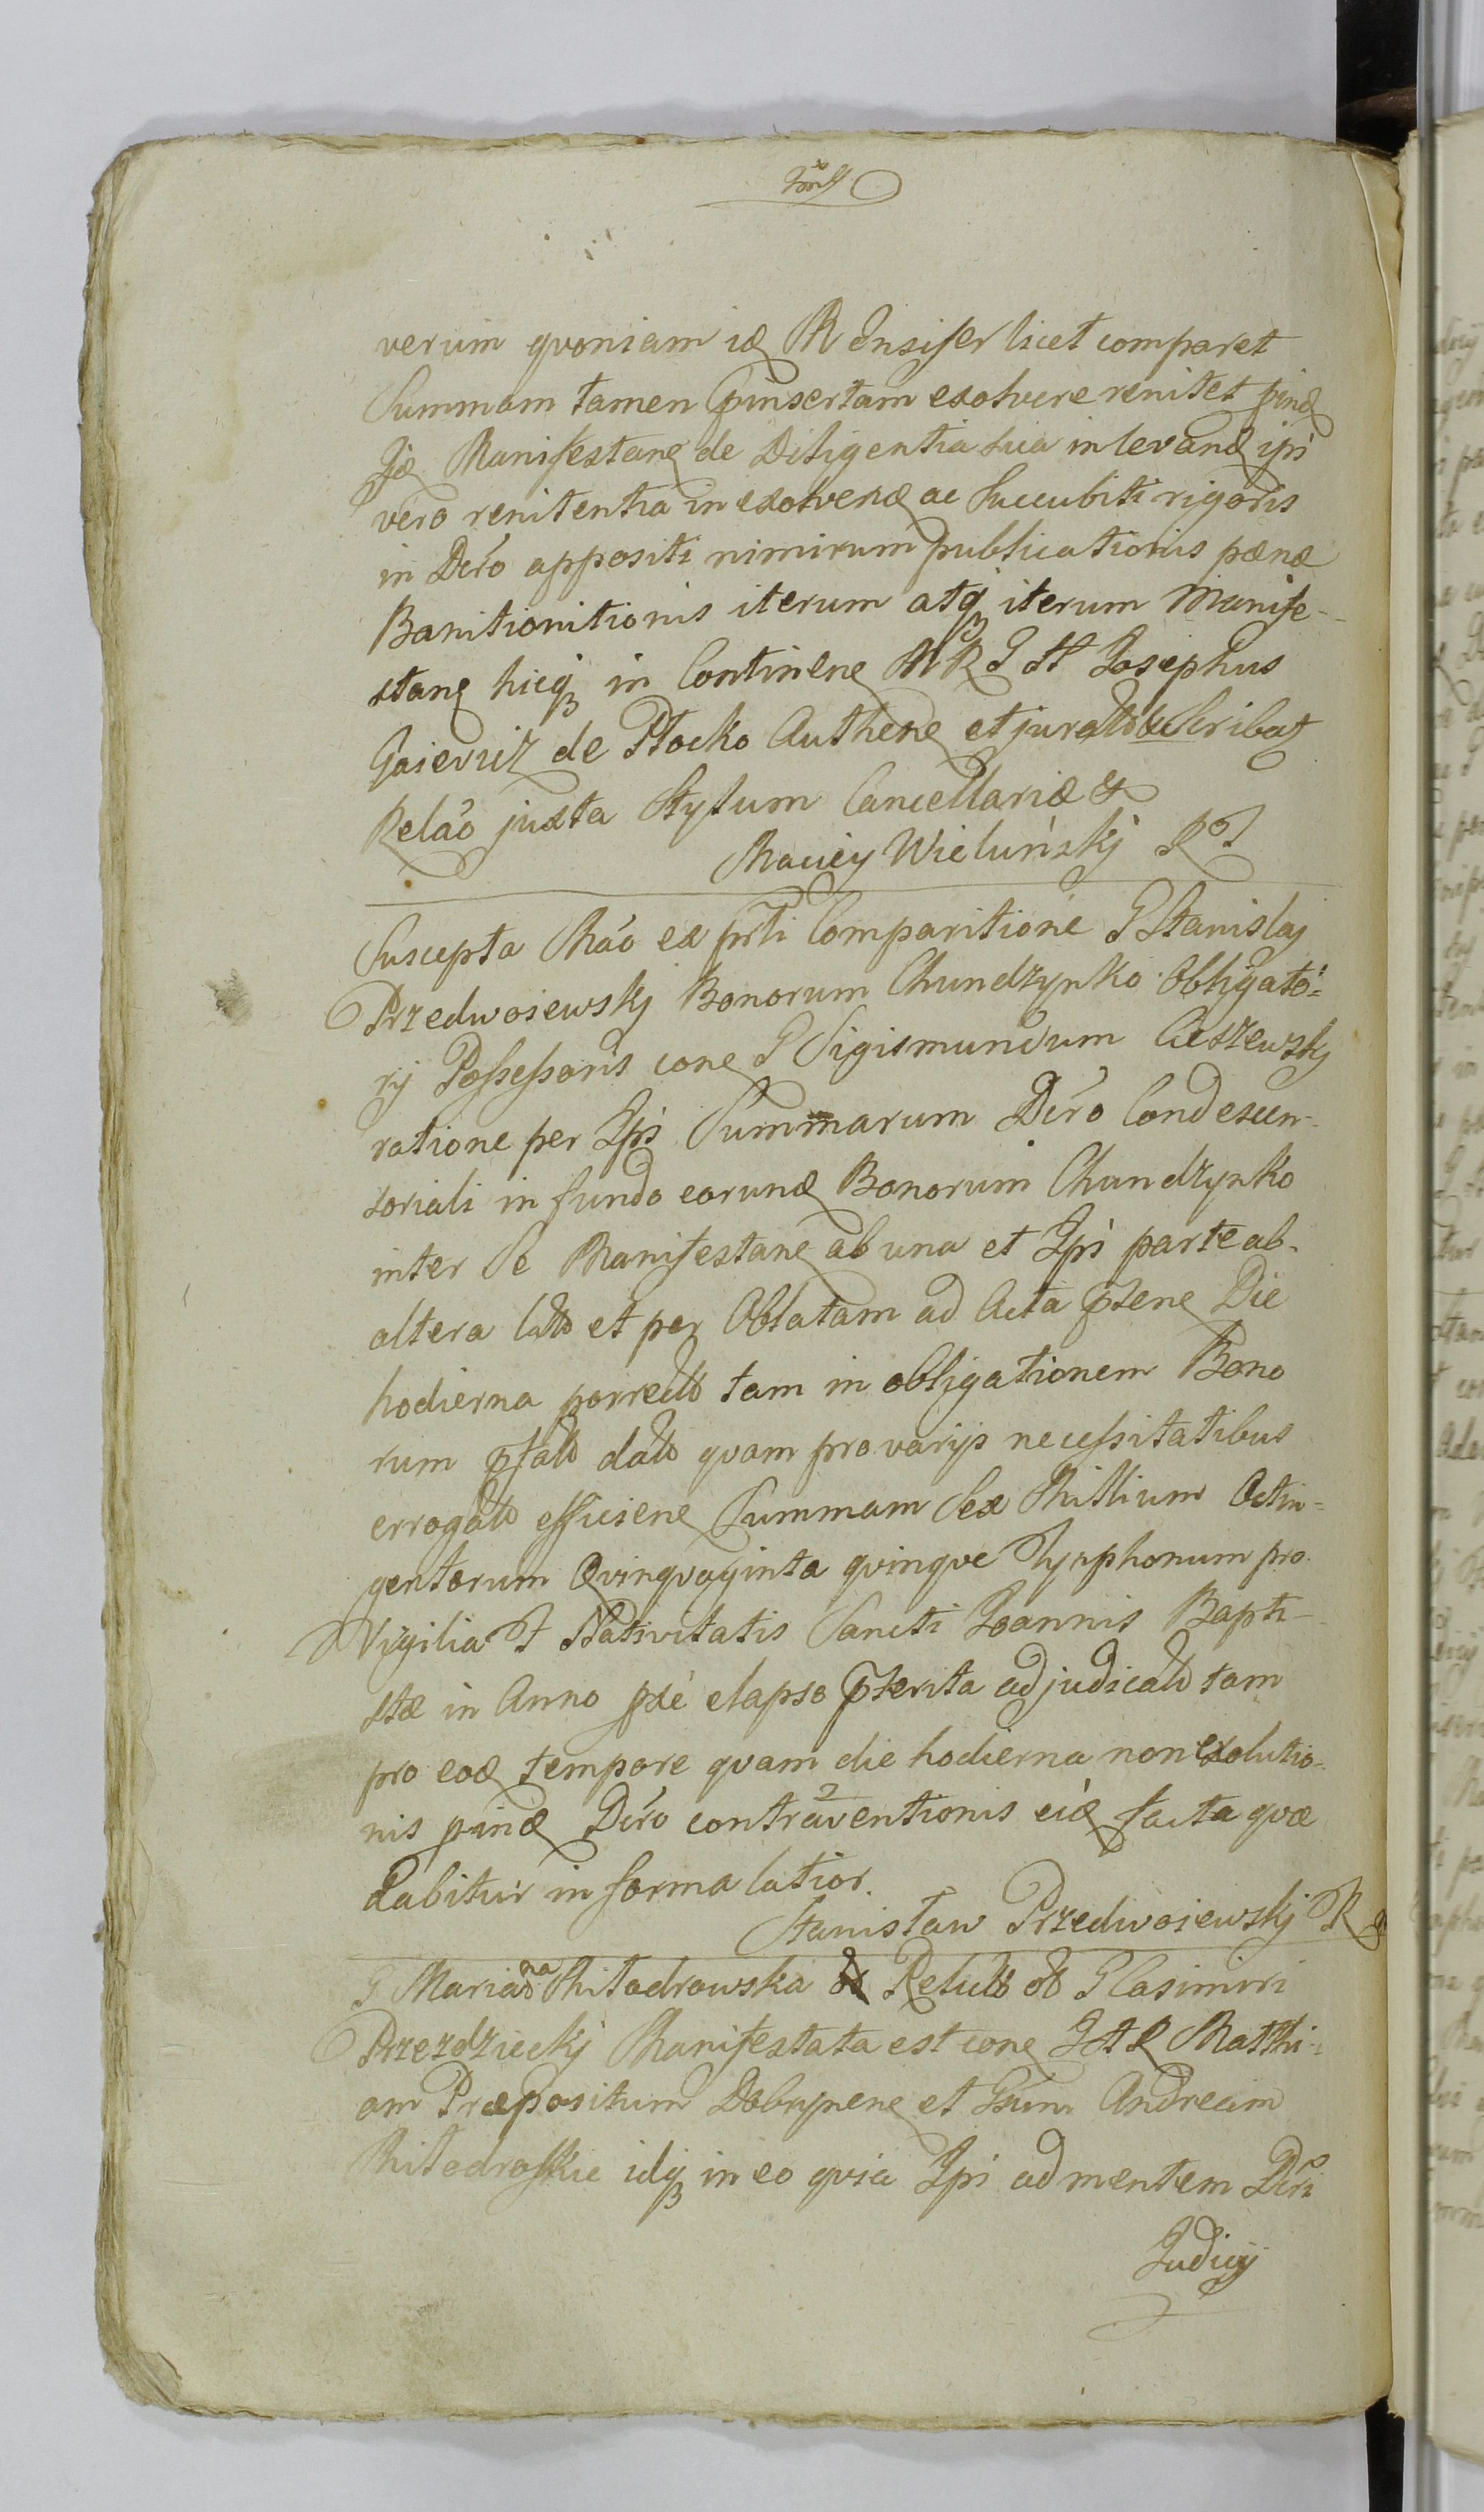 verum qvoniam id M Ensifer licet comparet
Summam tamen pinsertam exolvere renitet pind
Id Manifestans de Diligentia sua in levand ipi
vero renitentia in exolvend ac succubiti rigoris
in Dcro appositi nimirum publicationis pænæ
Banitionitionis iterum atq iterum Manife-
stans hicq in Continen M R J H Josephus
Gaiewicz de Płocko Authen et jurato Scribat
Relao juxta Stylum Cancellariæ &
Maciey Wieluńskj
Suscepta Mao ex prti Comparitione G Stanislaj
Przedwojewskj Bonorum Chundzynko Obligato=
rij Possessoris con G Sigismundum Cieszewskj
ratione per Ipi Summarum Dcro Condescen-
soriali in fundo eorund Bonorum Chundzynko
inter Se Manifestan ab una et Ipi parte ab-
altera lato et per Oblatam ad Acta psen Die
hodierna porrecto tam in obligationem Bono
rum pfato dato qvam pro varijs necessitatibus
errogato efficien Summam Sex Millium Octin=
gentorum Qvinqvaginta qvinqve Tynphonum pro
Vigilia F Nativitatis Sancti Joannis Bapti-
stæ in Anno pxe elapso pterita adjudicato tam
pro eod tempore qvam die hodierna non exolutio-
nis pind Dcro contraventionis eid facta qvæ
dabitur in forma latior.
Stanisław Przedwojewskj
G Marianna Mitodrowska Relicto G Casimiri
Przezdzieckj Manifestata est con J A R Matthi-
am Præpositum Dobrynen et Gsum Andream
Mitodroskie idq in eo qvia Ipi ad mentem Dcri
Judicij